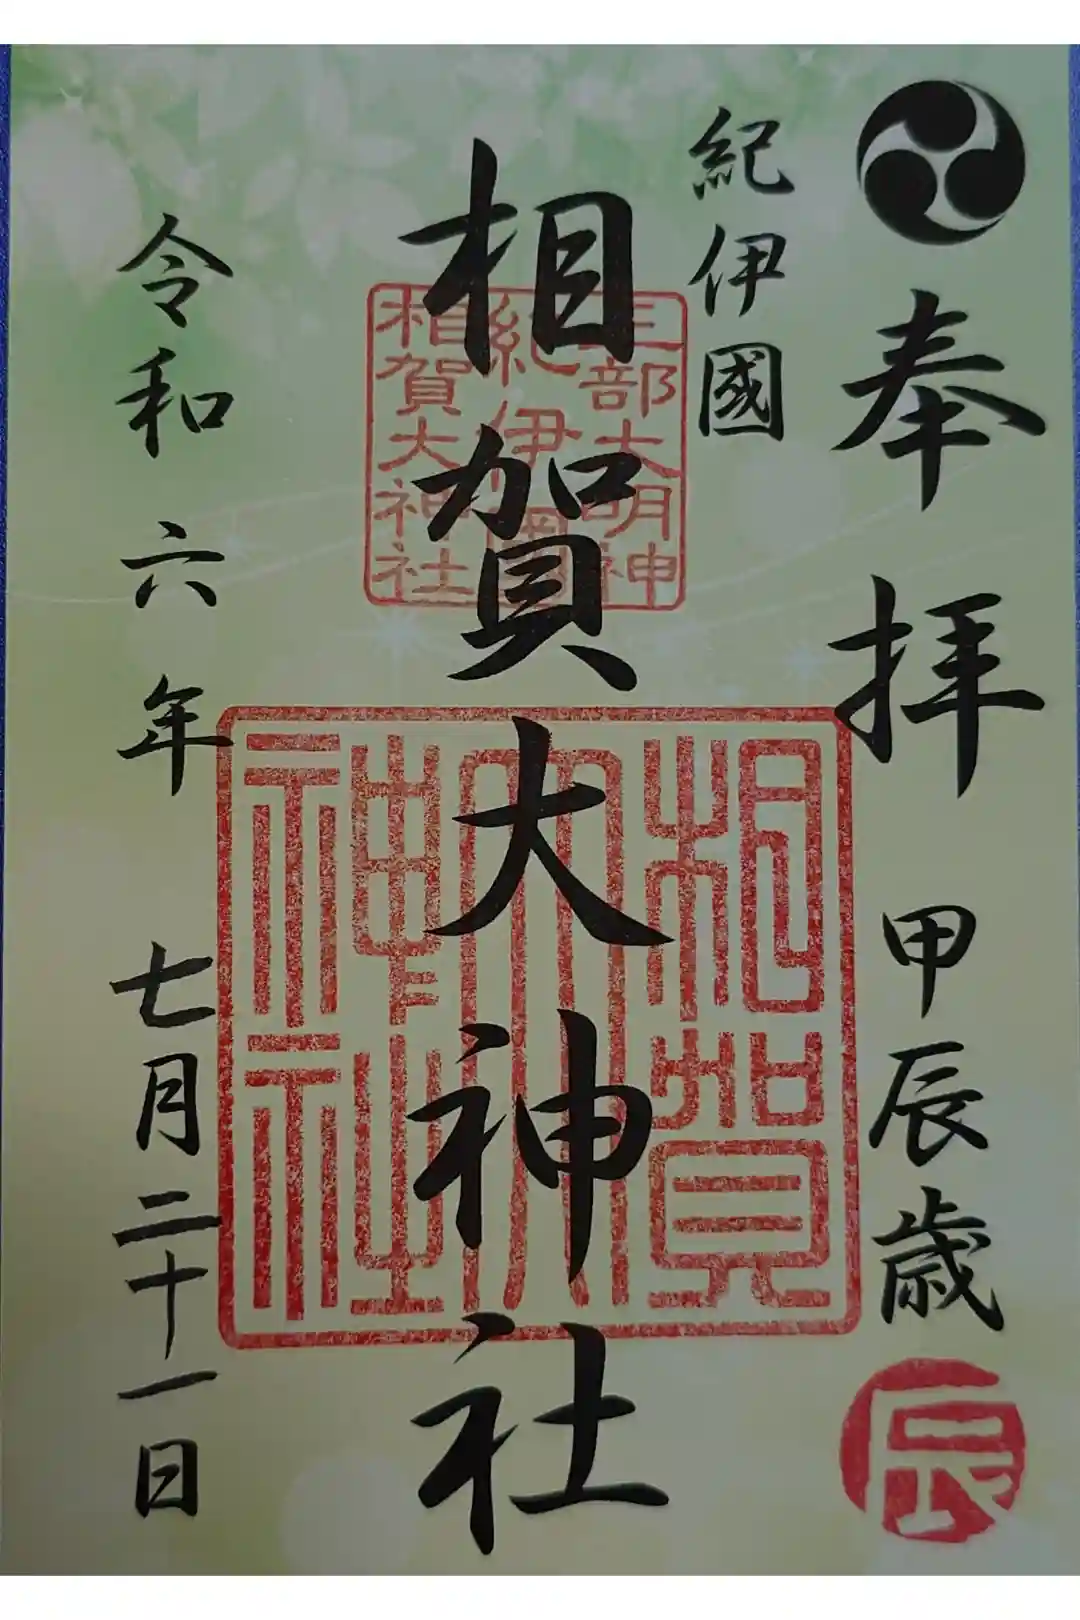 奉拝 甲辰歳
辰
紀伊國
相賀大神社
三部大明神
紀伊國
相賀大神社
相賀
大
神社
令和六年 七月二十一日